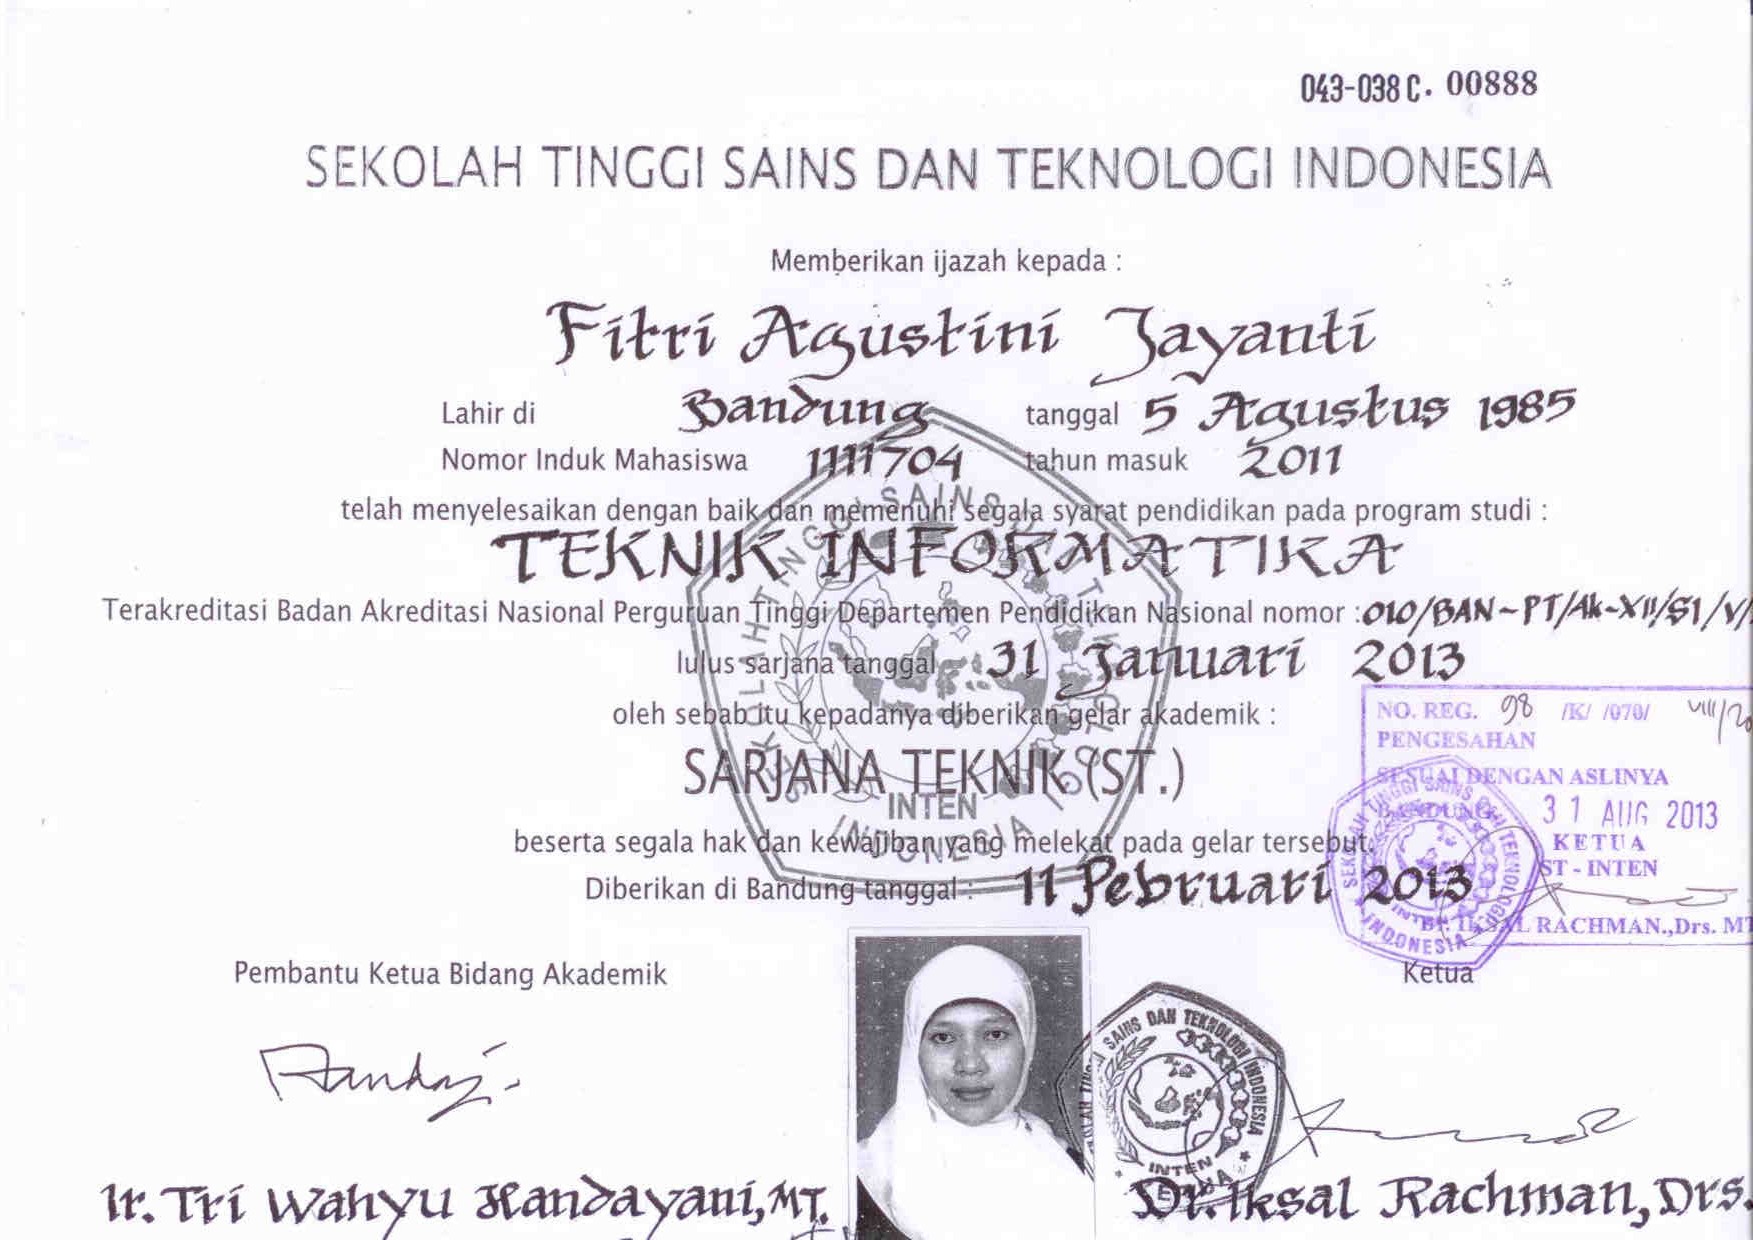 043-038 C. 00888
SEKOLAH TINGGI SAINS DAN TEKNOLOGI INDONESIA
Memberikan ijazah kepada :
Fitri Agustini Jayanti
Lahir di Bandung tanggal 5 Agustus 1985
Nomor Induk Mahasiswa 1111704 tahun masuk 2011
telah menyelesaikan dengan baik dan memenuhi segala syarat pendidikan pada program studi :
TEKNIK INFORMATIKA
Terakreditasi Badan Akreditasi Nasional Perguruan Tinggi Departemen Pendidikan Nasional nomor : 010/BAN-PT/Ak-XII/S1/V/
lulus sarjana tanggal 31 Januari 2013
oleh sebab itu kepadanya diberikan gelar akademik :
SARJANA TEKNIK (ST.)
beserta segala hak dan kewajiban yang melekat pada gelar tersebut.
Diberikan di Bandung tanggal : 11 Pebruari 2013
SEKOLAH TINGGI SAINS DAN TEKNOLOGI
INTEN
INDONESIA
NO. REG. 98 /K/ /070/ VIII/20
PENGESAHAN
SESUAI DENGAN ASLINYA
BANDUNG 31 AUG 2013
KETUA
ST - INTEN
Dr. IKSAL RACHMAN.,Drs. MT
SEKOLAH TINGGI SAINS DAN TEKNOLOGI
INTEN
INDONESIA
Pembantu Ketua Bidang Akademik
Ketua
SAINS DAN TEKNOLOGI INDONESIA
INTEN
KETUA
Handay
Ir. Tri Wahyu Handayani, MT.
Dr. Iksal Rachman, Drs.